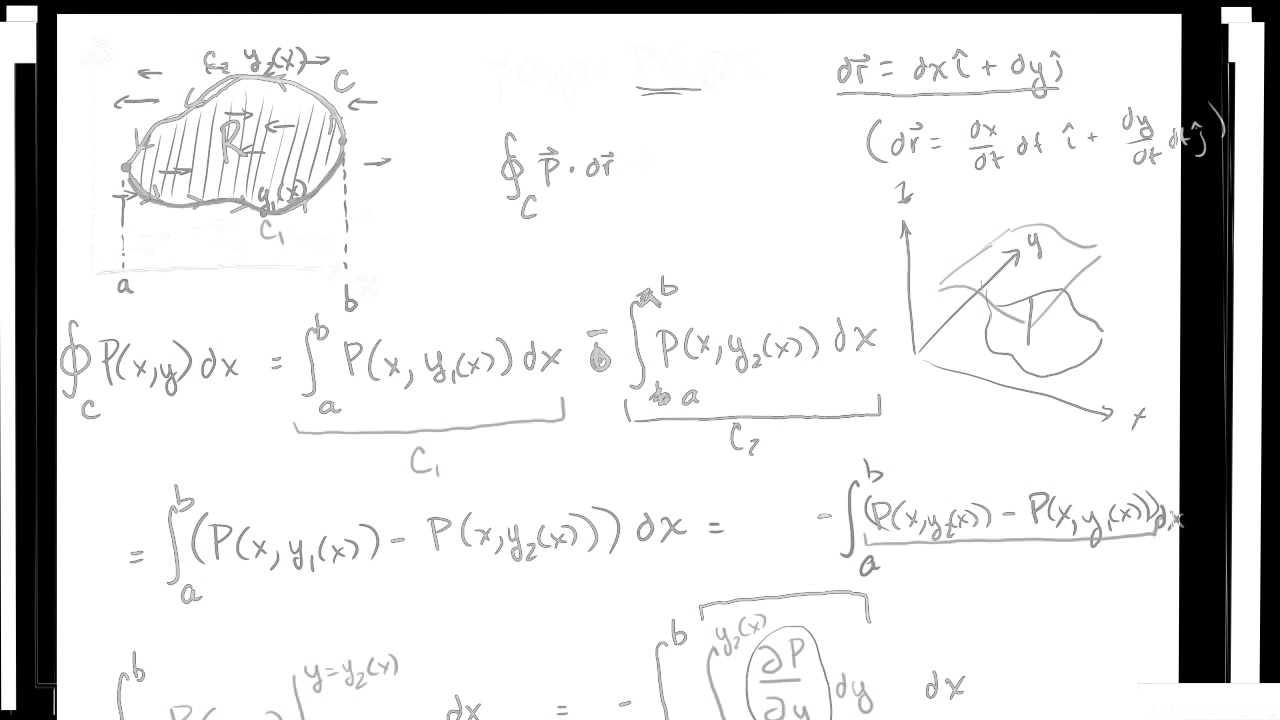 C₂ y₂(x)
C
R
y₁(x)
C₁
a
b
∮_C P⃗ · dr⃗
dr⃗ = dx î + dy ĵ
(dr⃗ = dx/dt dt î + dy/dt dt ĵ)
z
y
x
∮_C P(x,y) dx = ∫_a^b P(x, y₁(x)) dx - ∫_a^b P(x, y₂(x)) dx
C₁
C₂
= ∫_a^b (P(x, y₁(x)) - P(x, y₂(x))) dx = - ∫_a^b (P(x, y₂(x)) - P(x, y₁(x))) dx
y = y₂(x)
dx = - ∫^b ∫^{y₂(x)} ∂P/∂y dy dx